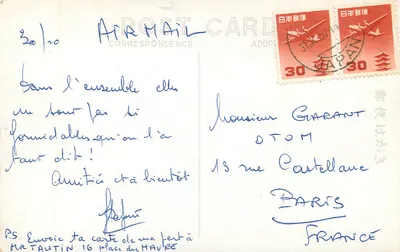 30/10 AIR MAIL
POST CARD
CORRESPONDENCE
ADDRE
日本郵便 日本郵便
30 30
JAPAN
郵便はがき
Dans l'ensemble elles
ne sont pas si
formidables qu'on l'a
tant dit !
Amitiés et à bientôt
Monsieur GARANT
OTOM
13 rue Castellane
PARIS
FRANCE
PS. Envoie ta carte de ma part à
MR TAUTIN 16 place du HAVRE